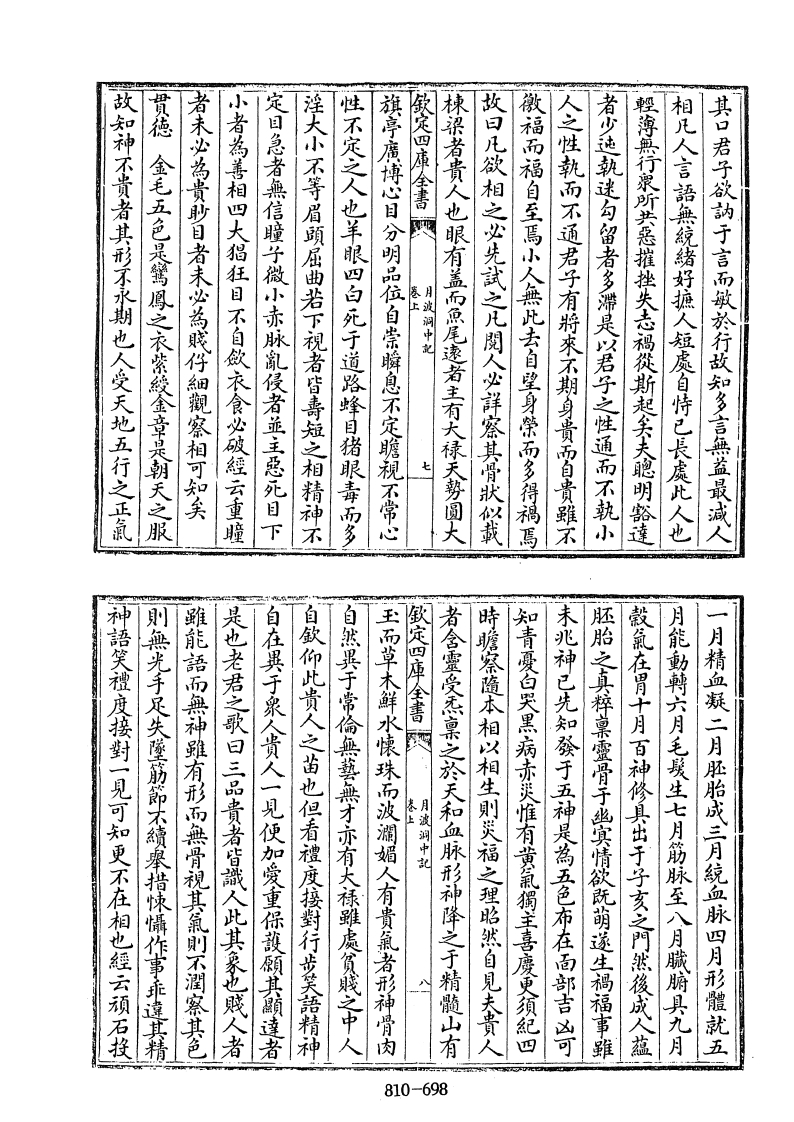 其口君子欲訥于言而敏於行故知多言無益最減人
相凡人言語無統緒好摭人短處自恃已長處此人也
輕薄無行衆所共惡摧挫失志禍從斯起矣夫聰明豁達
者少迍執迷勾留者多滯是以君子之性通而不執小
人之性執而不通君子有將來不期身貴而自貴雖不
徼福而福自至焉小人無此去自望身榮而多得禍焉
故曰凡欲相之必先試之凡閱人必詳察其骨狀似載
棟梁者貴人也眼有盖而魚尾遠者主有大禄天勢圓大
欽定四庫全書
月波洞中記
卷上
七
旗亭廣博心目分明品位自崇瞬息不定瞻視不常心
性不定之人也羊眼四白死于道路蜂目猪眼毒而多
淫大小不等眉頭屈曲若下視者皆壽短之相精神不
定目急者無信瞳子微小赤脉亂侵者並主惡死目下
小者為善相四大猖狂目不自歛衣食必破經云重瞳
者未必為貴眇目者未必為賤仔細觀察相可知矣
貫德　金毛五色是鸞鳳之衣紫綬金章是朝天之服
故知神不貴者其形不永期也人受天地五行之正氣
一月精血凝二月胚胎成三月統血脉四月形體就五
月能動轉六月毛髮生七月筋脉至八月臓腑具九月
穀氣在胃十月百神修具出于子亥之門然後成人蘊
胚胎之真粹稟靈骨于幽冥情欲既萌遂生禍福事雖
未兆神已先知發于五神是為五色布在面部吉凶可
知青憂白哭黒病赤災惟有黄氣獨主喜慶更須紀四
時瞻察隨本相以相生則災福之理昭然自見夫貴人
者含靈受炁稟之於天和血脉形神降之于精髓山有
欽定四庫全書
月波洞中記
卷上
八
玉而草木鮮水懷珠而波瀾媚人有貴氣者形神骨肉
自然異于常倫無藝無才亦有大禄雖處貧賤之中人
自欽仰此貴人之苗也但看禮度接對行步笑語精神
自在異于衆人貴人一見便加愛重保護願其顯達者
是也老君之歌曰三品貴者皆識人此其象也賤人者
雖能語而無神雖有形而無骨視其氣則不潤察其色
則無光手足失墜筋節不續舉措悚懾作事乖違其精
神語笑禮度接對一見可知更不在相也經云頑石投
810-698